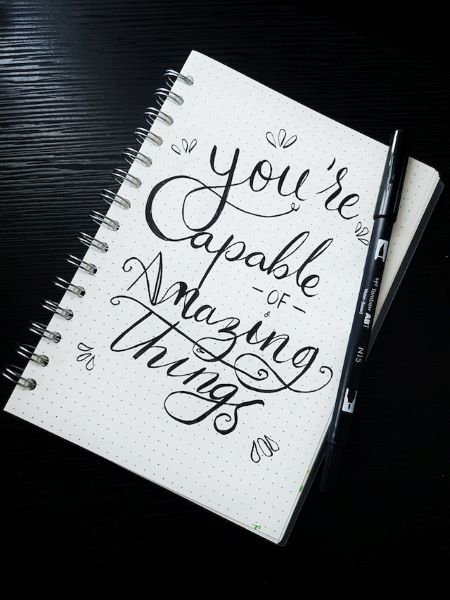 you're
Capable
- OF -
Amazing
Things
Tombow ABT
N15